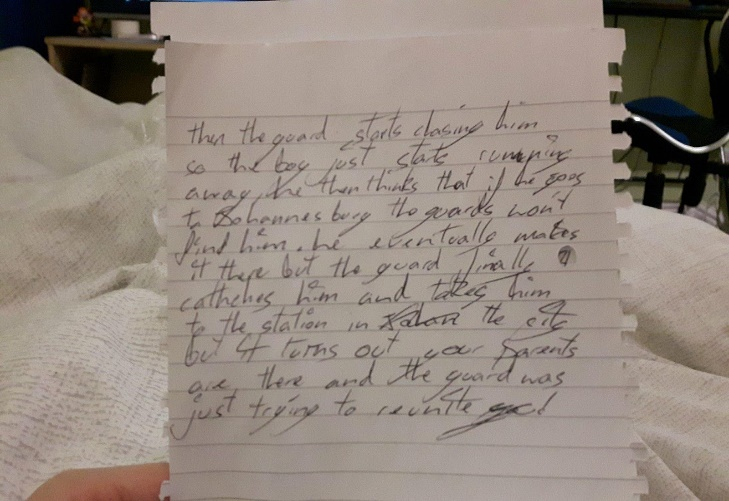 then the guard starts chasing him
so the boy just starts running
away, he then thinks that if he goes
to Johannesburg the guards won't
find him. he eventually makes
it there but the guard finally
catheches him and takes him
to the station in the city
but it turns out your parents
are there and the guard was
just trying to reunite